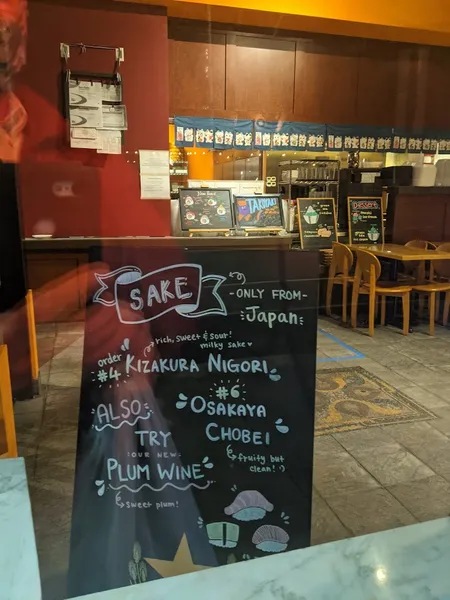 SAKE
-ONLY FROM-
Japan
rich, sweet & sour!
milky sake
order
#4 KIZAKURA NIGORI
#6
OSAKAYA
CHOBEI
fruity but
clean! :)
ALSO
TRY
:OUR NEW:
PLUM WINE
sweet plum!
TAKOYAKI
DESSERT